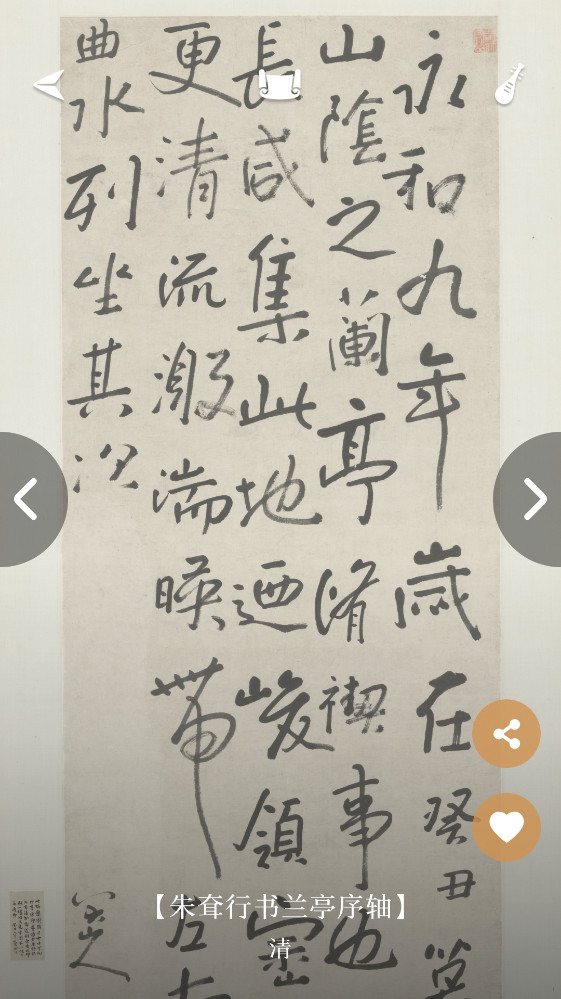 永和九年歲在癸丑
山陰之蘭亭脩禊事也
長咸集此地迺峻領崇
更清流激湍暎帶左右
曲水列坐其次
八大山人
【朱耷行书兰亭序轴】
清